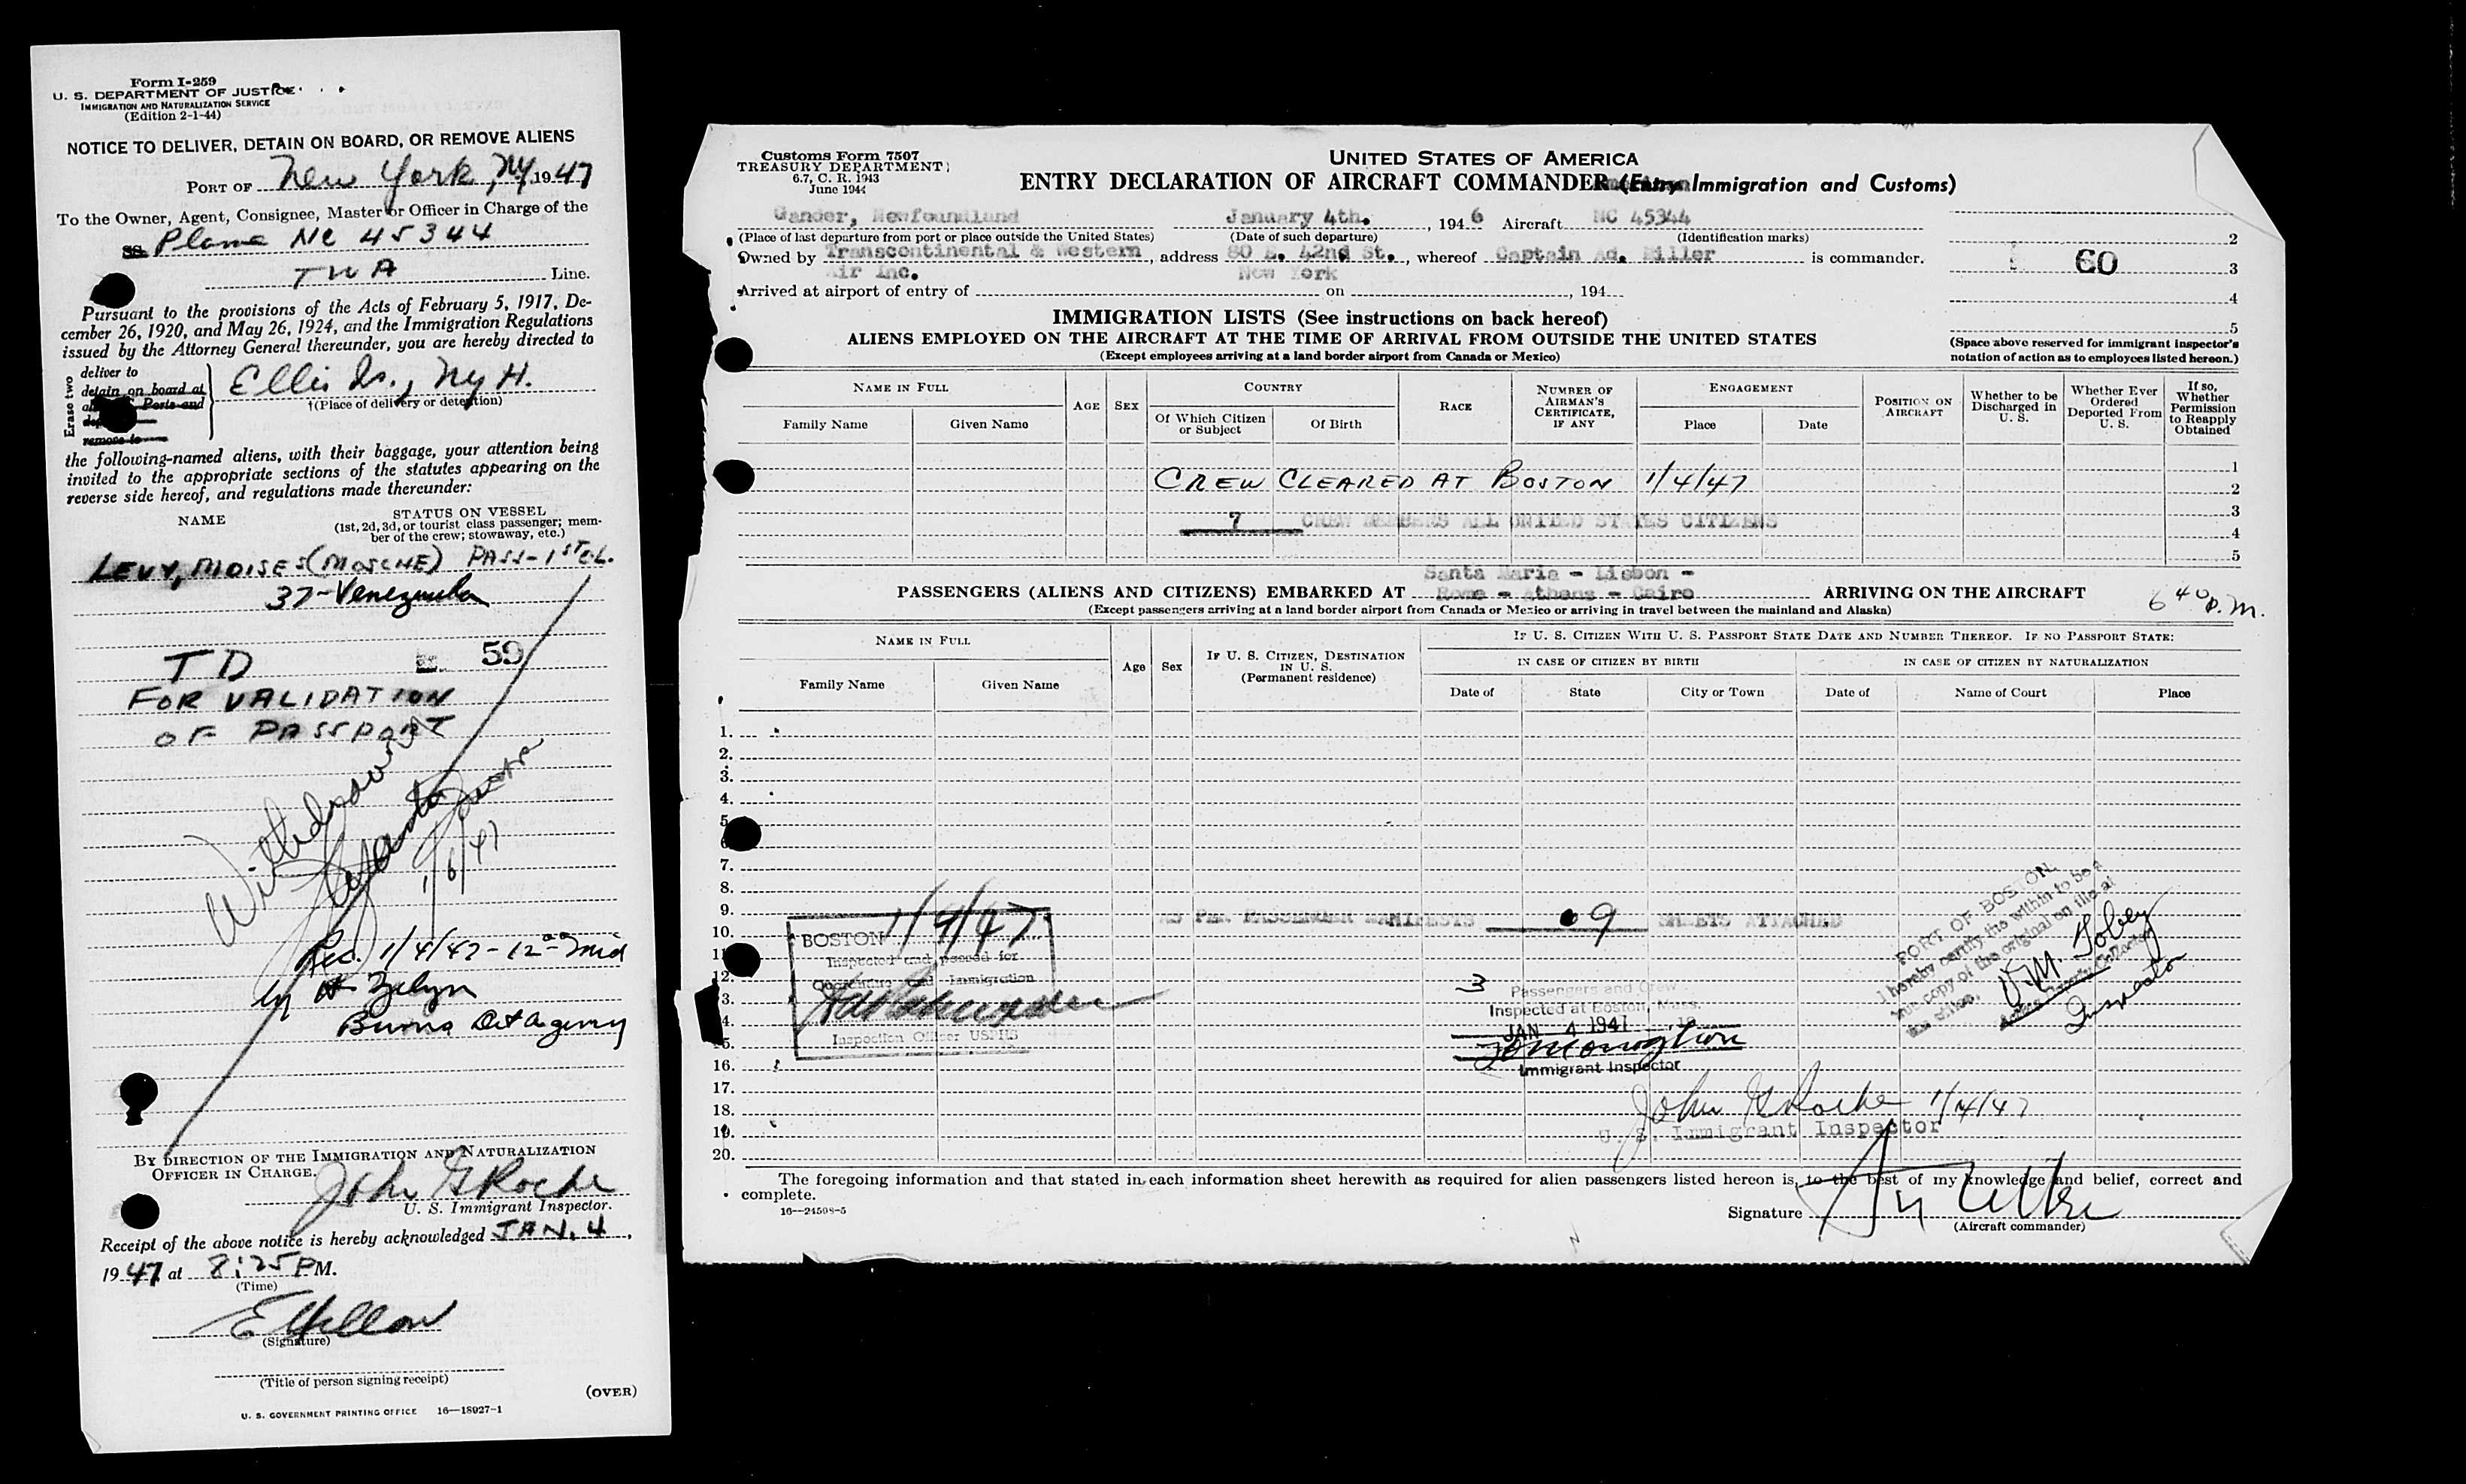 Form I-259
U. S. DEPARTMENT OF JUSTICE
IMMIGRATION AND NATURALIZATION SERVICE
(Edition 2-1-44)
NOTICE TO DELIVER, DETAIN ON BOARD, OR REMOVE ALIENS
PORT OF New York, NY, 1947
To the Owner, Agent, Consignee, Master or Officer in Charge of the
SS. Plane NC 45344
TWA Line.
Pursuant to the provisions of the Acts of February 5, 1917, De-
cember 26, 1920, and May 26, 1924, and the Immigration Regulations
issued by the Attorney General thereunder, you are hereby directed to
Erase two
deliver to
detain on board at
Ports and
remove to
Ellis Is., NY H.
†(Place of delivery or detention)
the following-named aliens, with their baggage, your attention being
invited to the appropriate sections of the statutes appearing on the
reverse side hereof, and regulations made thereunder:
NAME
STATUS ON VESSEL
(1st, 2d, 3d, or tourist class passenger; mem-
ber of the crew; stowaway, etc.)
LEVY, MOISES (MOSCHE) PASS-1ST CL.
37-Venezuela
TD 59
FOR VALIDATION
OF PASSPORT
Withdrawn
1/6/47
Rec. 1/4/47-12 00 Mid
by
Burns Det Agency
BY DIRECTION OF THE IMMIGRATION AND NATURALIZATION
OFFICER IN CHARGE.
John G Roche
U. S. Immigrant Inspector.
Receipt of the above notice is hereby acknowledged JAN. 4,
1947 at 8:25 PM.
(Time)
(Signature)
(Title of person signing receipt)
(OVER)
U. S. GOVERNMENT PRINTING OFFICE 16—18927-1
Customs Form 7507
TREASURY DEPARTMENT
6.7, C. R. 1943
June 1944
UNITED STATES OF AMERICA
ENTRY DECLARATION OF AIRCRAFT COMMANDER (Entry Immigration and Customs)
Gander, Newfoundland January 4th. , 1946 Aircraft NC 45344
(Place of last departure from port or place outside the United States) (Date of such departure) (Identification marks)
Owned by Transcontinental & Western Air Inc. , address 80 E. 42nd St. New York , whereof Captain Ad. Miller is commander.
Arrived at airport of entry of on , 194
2
60
3
4
5
(Space above reserved for immigrant inspector's
notation of action as to employees listed hereon.)
IMMIGRATION LISTS (See instructions on back hereof)
ALIENS EMPLOYED ON THE AIRCRAFT AT THE TIME OF ARRIVAL FROM OUTSIDE THE UNITED STATES
(Except employees arriving at a land border airport from Canada or Mexico)
NAME IN FULL
Family Name
Given Name
AGE
SEX
COUNTRY
Of Which Citizen or Subject
Of Birth
RACE
NUMBER OF AIRMAN'S CERTIFICATE, IF ANY
ENGAGEMENT
Place
Date
POSITION ON AIRCRAFT
Whether to be Discharged in U. S.
Whether Ever Ordered Deported From U. S.
If so, Whether Permission to Reapply Obtained
1
CREW CLEARED AT BOSTON 1/4/47
2
3
7 CREW MEMBERS ALL UNITED STATES CITIZENS
4
5
Santa Maria - Lisbon -
PASSENGERS (ALIENS AND CITIZENS) EMBARKED AT Rome - Athens - Cairo ARRIVING ON THE AIRCRAFT
6 40 P.M.
(Except passengers arriving at a land border airport from Canada or Mexico or arriving in travel between the mainland and Alaska)
NAME IN FULL
Family Name
Given Name
Age
Sex
IF U. S. CITIZEN, DESTINATION IN U. S.
(Permanent residence)
IF U. S. CITIZEN WITH U. S. PASSPORT STATE DATE AND NUMBER THEREOF. IF NO PASSPORT STATE:
IN CASE OF CITIZEN BY BIRTH
IN CASE OF CITIZEN BY NATURALIZATION
Date of
State
City or Town
Date of
Name of Court
Place
1.
2.
3.
4.
5
6
7.
8.
9.
AS PER PASSENGER MANIFESTS 9 SHEETS ATTACHED
10.
11
12.
13.
14.
15.
16.
17.
18.
19.
20.
BOSTON 1/4/47
Inspected and passed for
Quarantine and Immigration
Inspection Officer USPHS
3 Passengers and Crew
Inspected at Boston, Mass.
JAN 4 1947
Immigrant Inspector
PORT OF BOSTON.
I hereby certify the within to be a
true copy of the original on file at
this office.
V.M. Tobey
Inspector
John G Roche 1/4/47
U. S. Immigrant Inspector
The foregoing information and that stated in each information sheet herewith as required for alien passengers listed hereon is, to the best of my knowledge and belief, correct and
complete.
16—24598-5
Signature
(Aircraft commander)